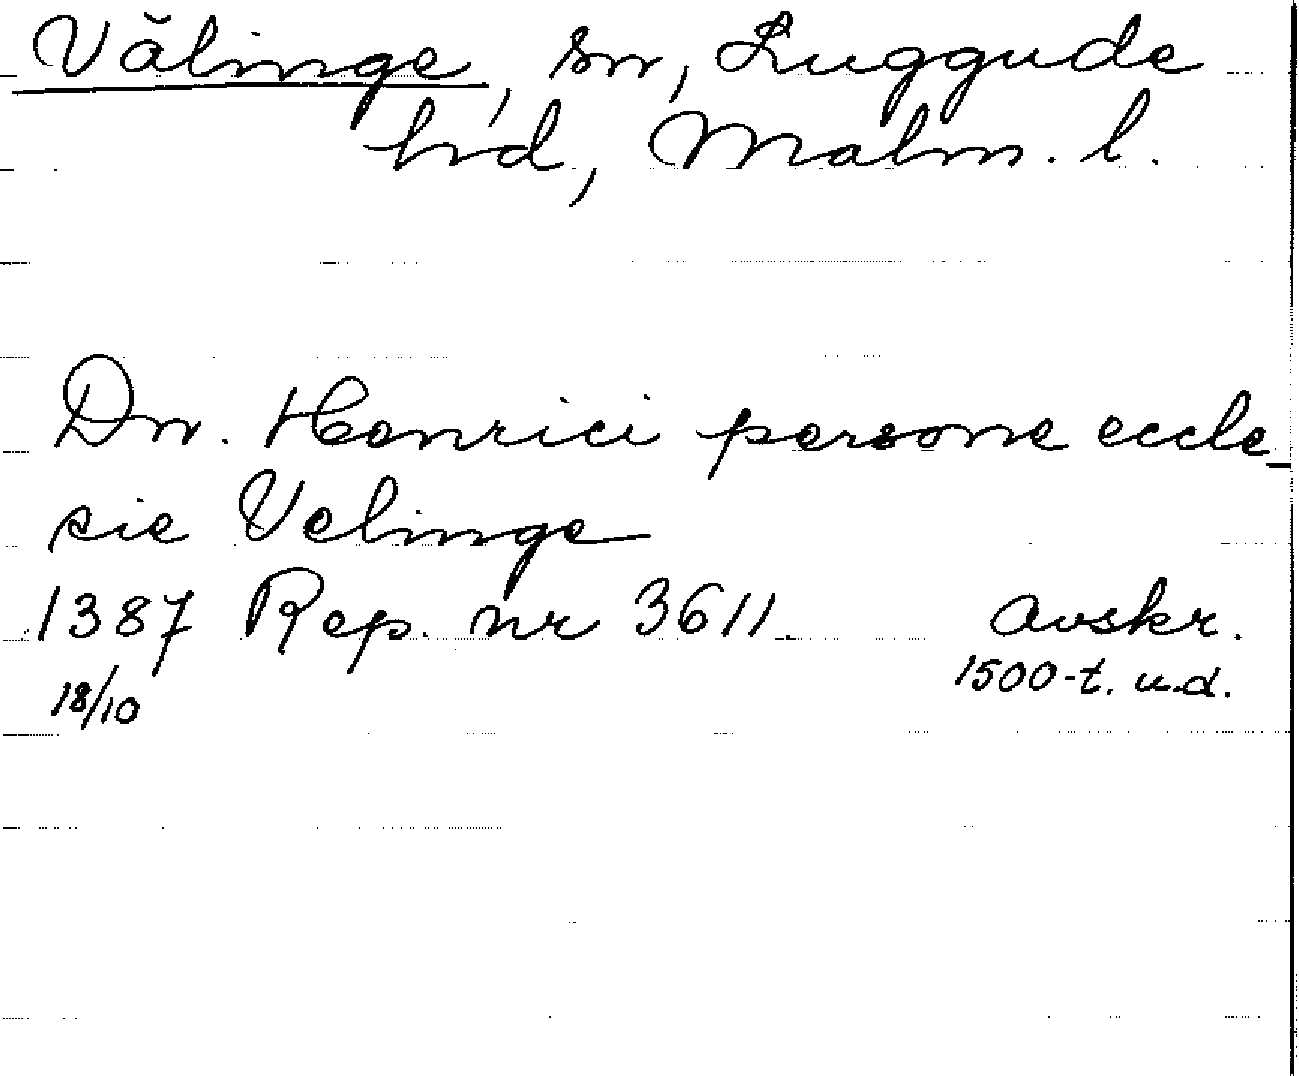 Välinge, sn, Luggude
hd, Malm. l.
Dn. Henrici persone eccle-
sie Velinge
1387 Rep. nr 3611 avskr.
18/10 1500-t. u.d.